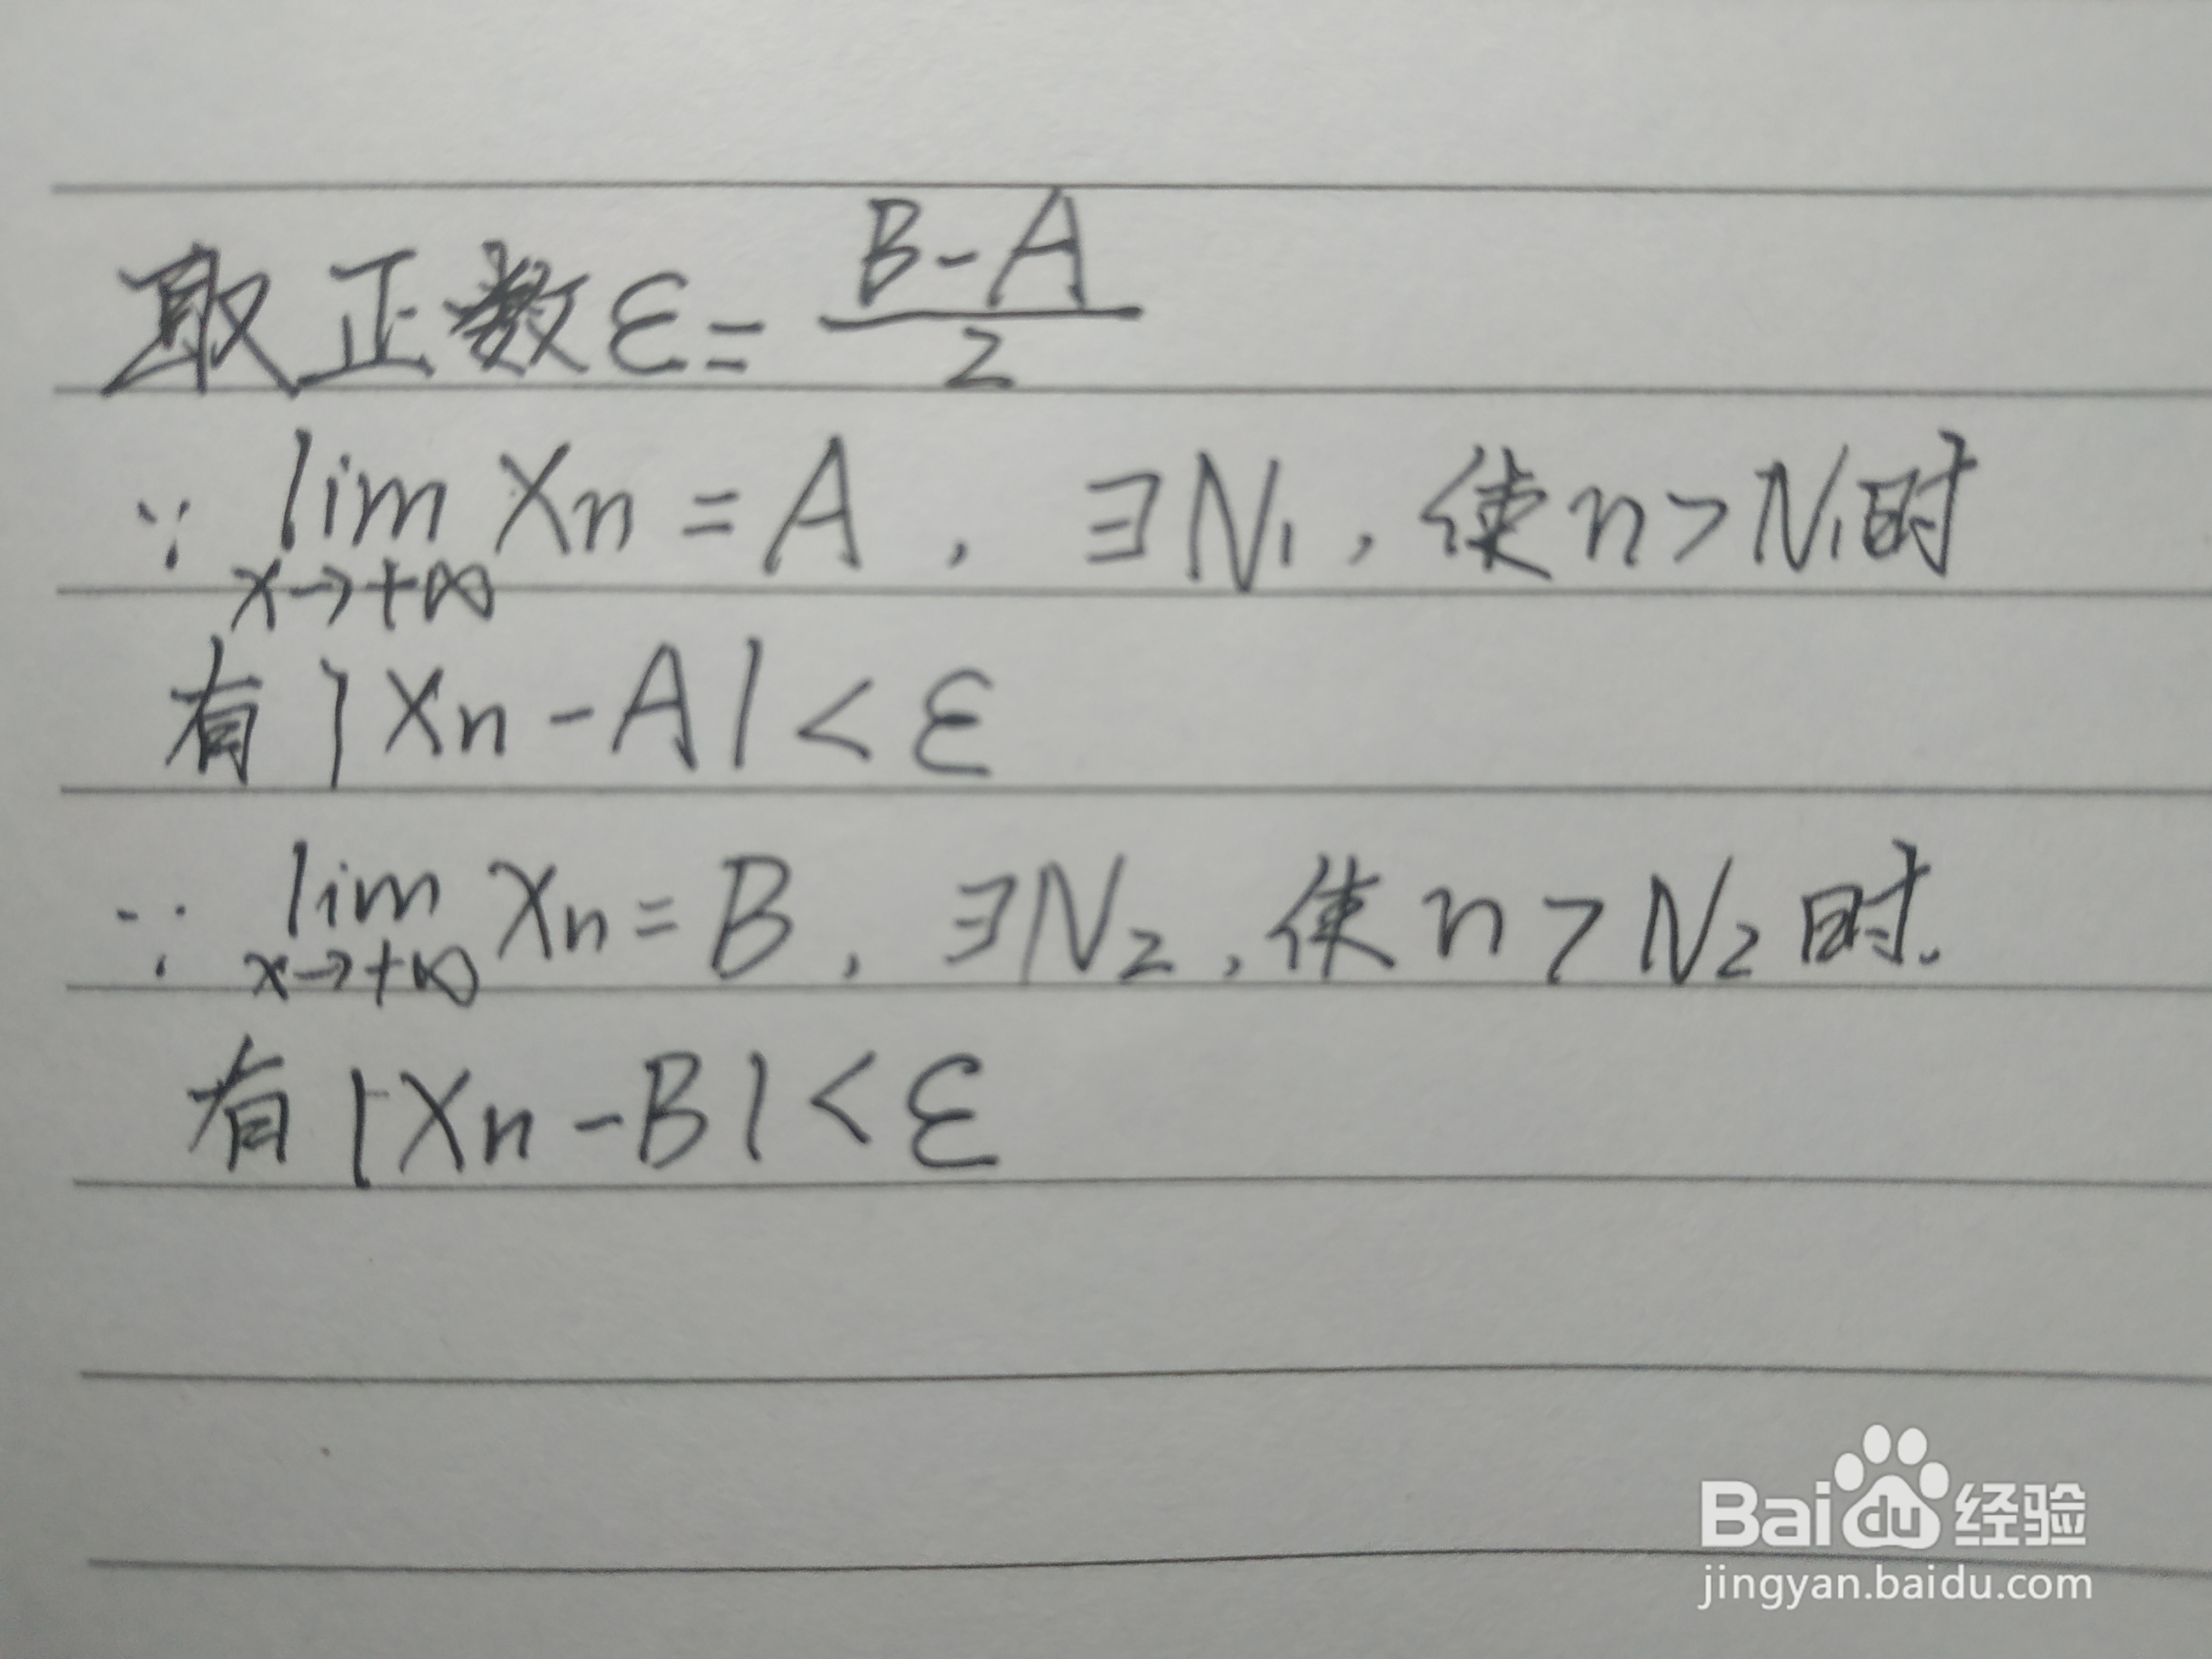 取正数ε=(B-A)/2
∵ lim Xn = A, ∃N₁, 使n>N₁时
x→+∞
有|Xn-A|<ε
∵ lim Xn = B, ∃N₂, 使n>N₂时.
x→+∞
有|Xn-B|<ε
Baidu经验
jingyan.baidu.com